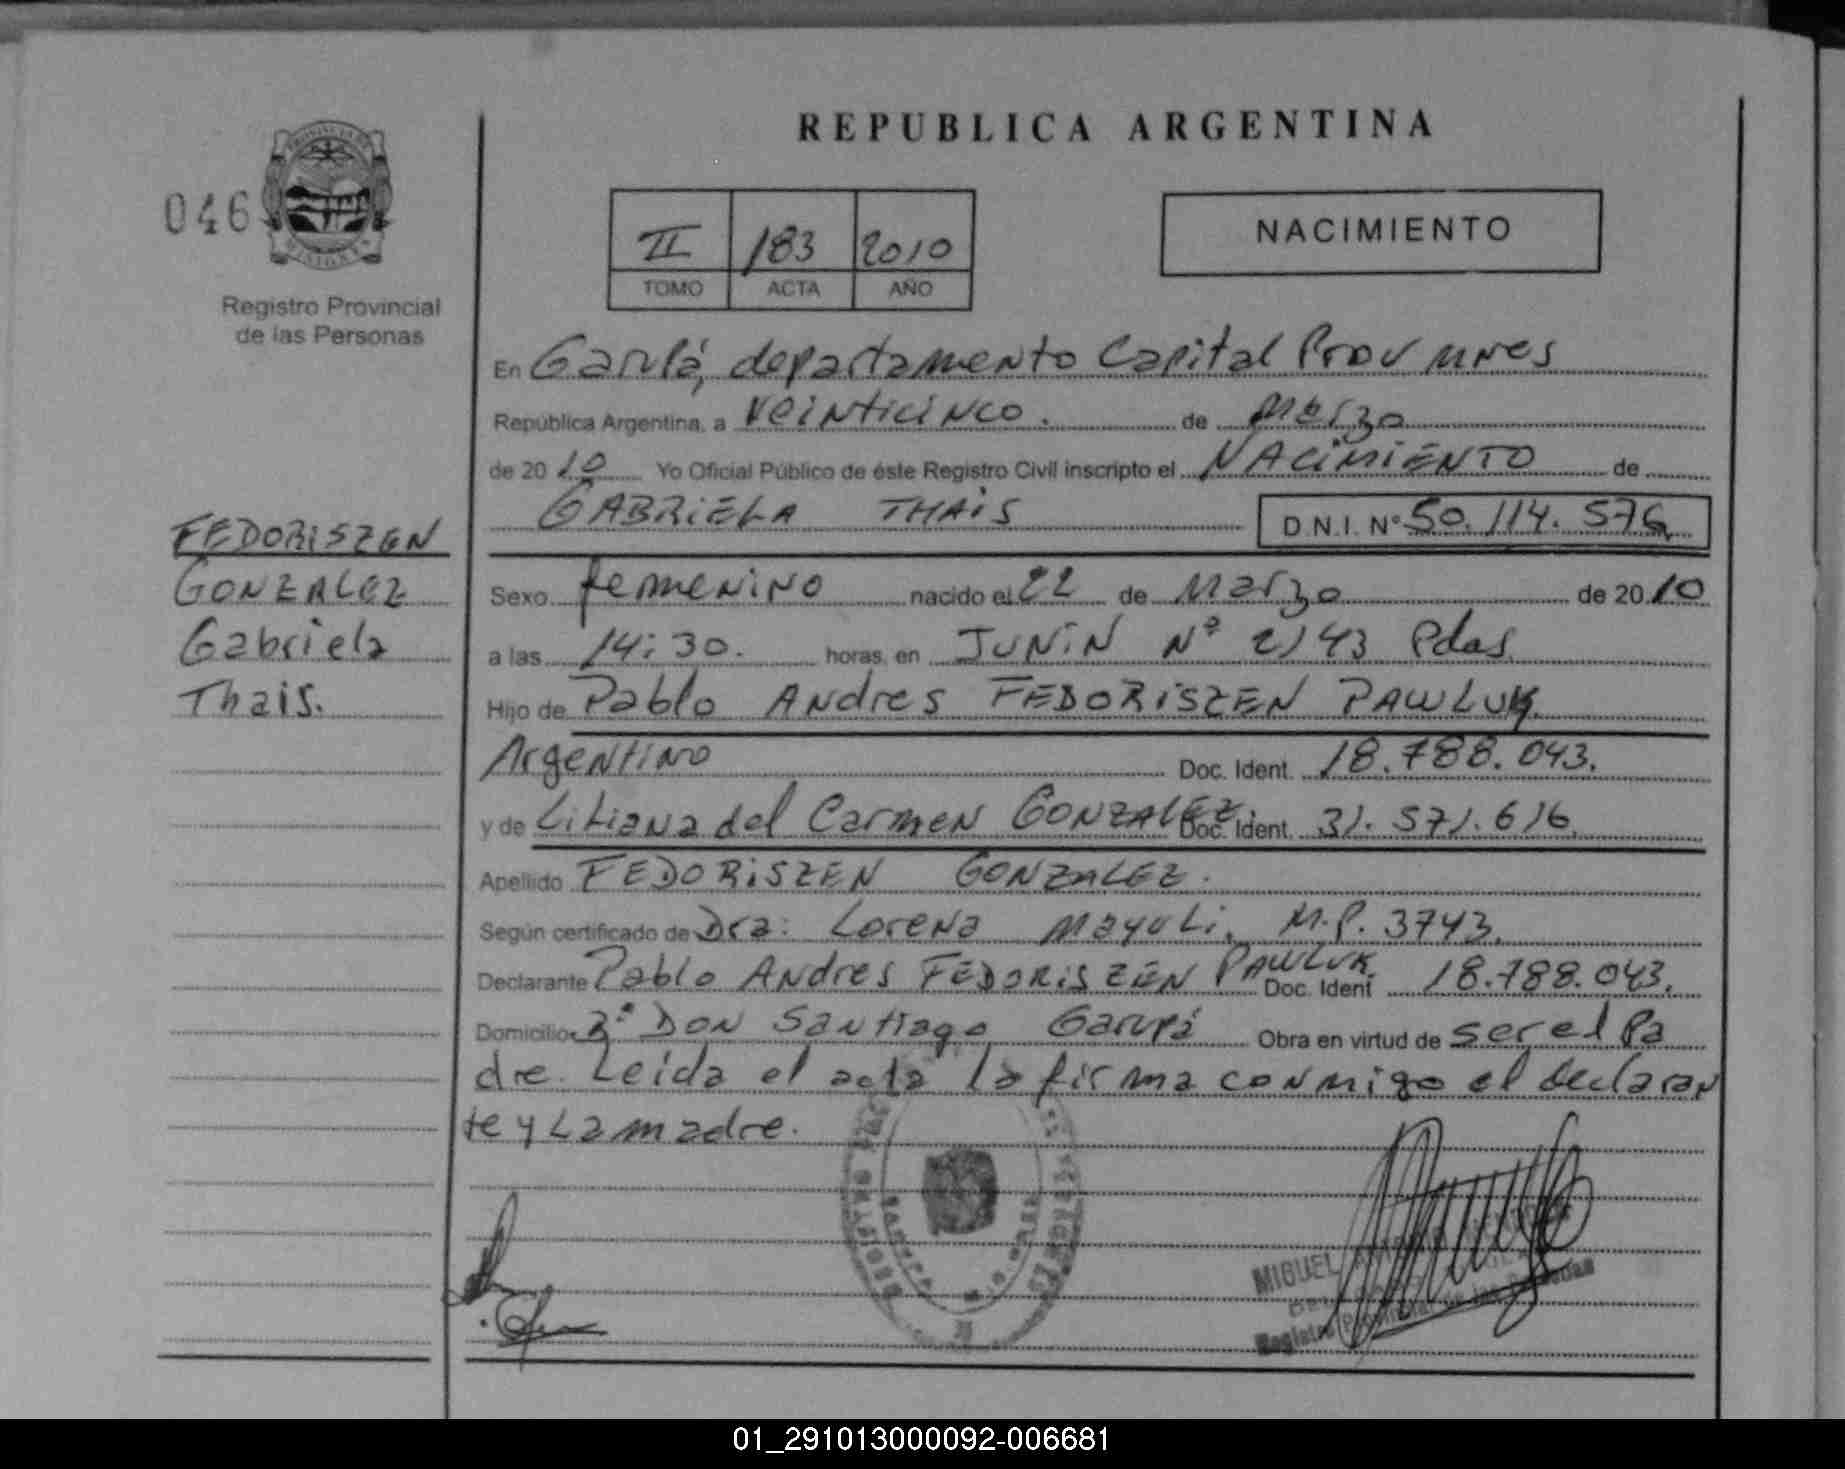 REPUBLICA ARGENTINA
046
PROVINCIA DE MISIONES
Registro Provincial
de las Personas
II 183 2010
TOMO ACTA AÑO
NACIMIENTO
En Garupá, departamento Capital Prov mnes
República Argentina, a veinticinco. de Marzo
de 2010 Yo Oficial Público de éste Registro Civil inscripto el NACIMIENTO de
GABRIELA THAIS D.N.I. Nº 50.114.576
FEDORISZEN
GONZALEZ
Gabriela
Thais.
Sexo femenino nacido el 22 de Marzo de 2010
a las 14:30. horas, en JUNIN Nº 2143 Pdas
Hijo de Pablo Andres FEDORISZEN PAWLUK
Argentino Doc. Ident. 18.788.043.
y de Liliana del Carmen GONZALEZ. Doc. Ident. 31.571.616
Apellido FEDORISZEN GONZALEZ.
Según certificado de Dra: Lorena Mayuli. M.P. 3743.
Declarante Pablo Andres FEDORISZEN PAWLUK. Doc. Ident 18.788.043.
Domicilio Bº Don Santiago Garupá Obra en virtud de ser el Pa
dre. Leida el acta la firma conmigo el declaran
te y La madre.
MIGUEL
Registro Provincial de las Personas
01_291013000092-006681